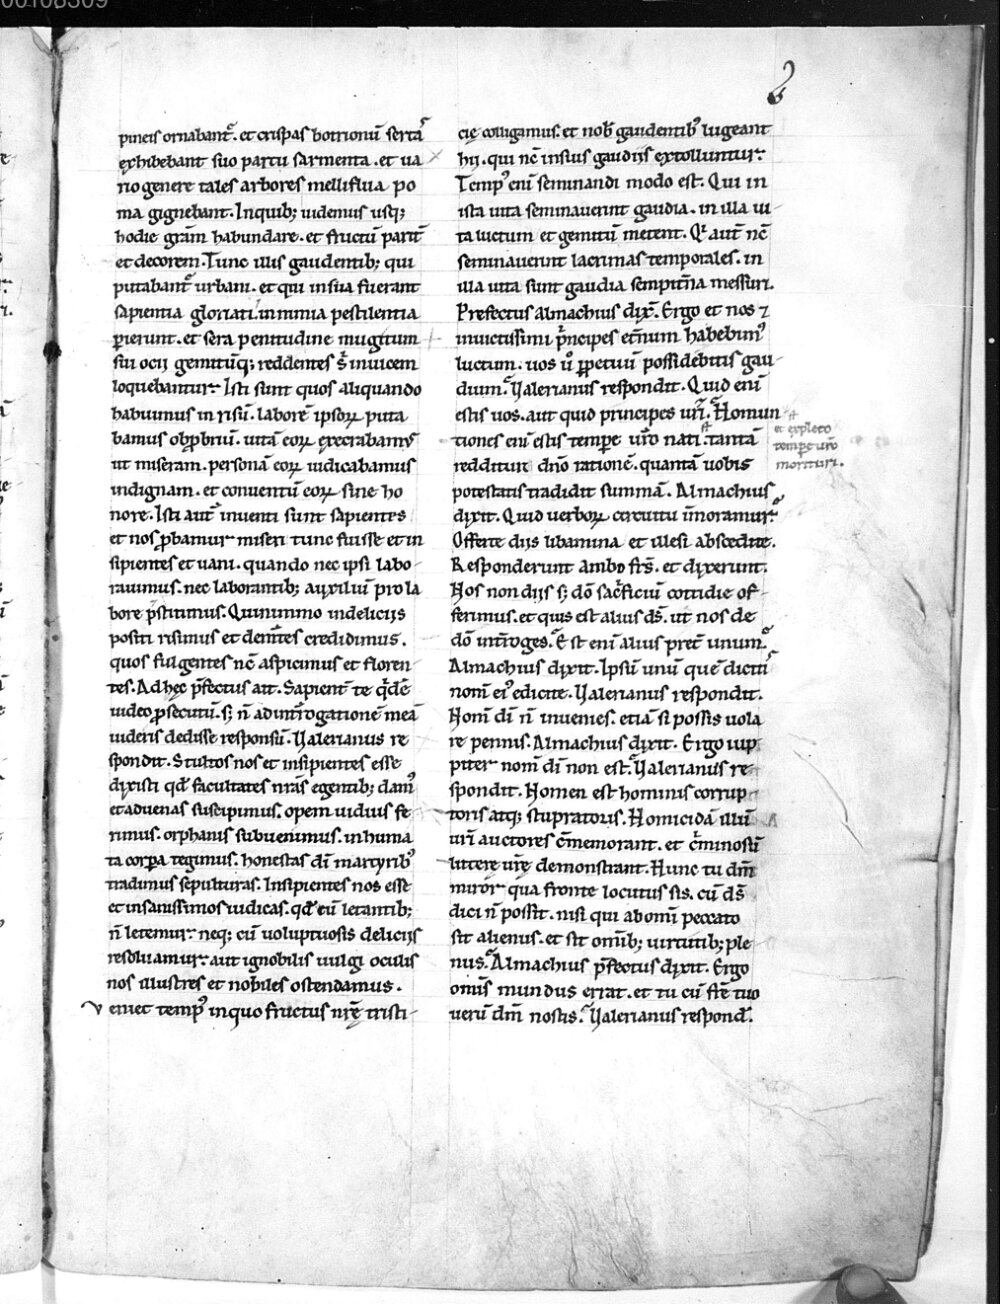 00108309
pineis ornabant᷑. et crispas botrionū serta᷑
exhibebant suo partu sarmenta. et ua
rio genere tales arbores melliflua po
ma gignebant. Inquib; uidemus usq;
hodie grām habundare. et fructū parit᷑
et decorem. Tunc illis gaudentib; qui
putabant᷑ urbani. et qui in sua fuerant
sapientia gloriati. in nimia pestilentia
ꝑierunt. et sera penitudine mugitum
sui ocii gemitūq; reddentes s̄ inuicem
loquebantur. Isti sunt quos aliquando
habuimus in risū. laborē ipsoꝝ puta
bamus obꝓbriū. uitā eoꝝ execrabam᷑
ut miseram. personā eoꝝ iudicabamus
indignam. et conuentū eoꝝ sine ho
nore. Isti aut̄ inuenti sunt sapientes
et nos ꝓbamur miseri tunc fuisse et in
sipientes et uani. quando nec ipsi labo
rauimus. nec laborantib; auxiliū pro la
bore p̄stitimus. Quinimmo in deliciis
positi risimus et dem̄tes credidimus.
quos fulgentes nc̄ aspicimus et floren
tes. Ad hęc p̄fectus ait. Sapient̄ te q̇dē
uideo ꝓsecutū. s; n̄ ad int̄rogationē meā
uideris dedisse responsū. Valerianus re
spondit. Stultos nos et insipientes esse
dixisti qd̄ facultates nr̄as egentib; dam᷒
et aduenas suscipimus. opem uiduis fe
rimus. orphanis subuenimus. inhuma
ta corꝑa tegimus. honestas dī martyrib᷒
tradimus sepulturas. Insipientes nos esse
et insanissimos iudicas. qd̄ cū letantib;
n̄ letemur. neq; cū uoluptuosis deliciis
resoluamur. aut ignobilis uulgi oculis
nos illustres et nobiles ostendamus.
Veniet temp᷒ in quo fructus nr̄ę tristi
cię colligamus. et nob̄ gaudentib᷒ lugeant
hii. qui nc̄ in suis gaudiis extolluntur.
Temp᷒ enī seminandi modo est. Qui in
ista uita seminauerint gaudia. in illa ui
ta luctum et gemitū metent. Qi aut̄ nc̄
seminauerint lacrimas temporales. in
illa uita sunt gaudia sempit̄na messuri.
Prefectus almachius dix̄. Ergo et nos ⁊
inuictissimi p̄ncipes et̄num habebim᷒
luctum. uos u̇ ꝑpetuū possidebitis gau
dium. Valerianus respondit. Quid enī
estis uos. aut quid principes ur̄i. Homun
tiones enī estis tempore ur̄o nati. tantā
reddituri dn̄o rationē. quantā uobis
potestatis tradidit summā. Almachius
dixit. Quid uerboꝝ circuitu īmoramur.
Offerte diis libamina et illesi abscedite.
Responderunt ambo fr̄s. et dixerunt.
Nos non diis s; dō sac̄ficiū cottidie of
ferimus. et quis est alius ds̄. ut nos de
dō int̄roges. Est enī alius pret̄ unum.
Almachius dixit. Ipsū unū quē dicitis
nom̄ ei᷒ edicite. Valerianus respondit.
Nom̄ dī n̄ inuenies. etiā si possis uola
re pennis. Almachius dixit. Ergo iup
piter nom̄ dī non est. Valerianus re
spondit. Nomen est hominis corrup
toris atq; stupratoris. Homicidā illū
ur̄i auctores c̄memorant. et c̄minosū
litterę ur̄ę demonstrant. Hunc tu dm̄
miror qua fronte locutus sis. cū ds̄
dici n̄ possit. nisi qui ab omī peccato
sit alienus. et sit omīb; uirtutib; ple
nus. Almachius p̄fectus dixit. Ergo
omīs mundus errat. et tu cū fr̄e tuo
uerū dm̄ nostis. Valerianus respond̄.
et expleto
tempore ur̄o
morituri.